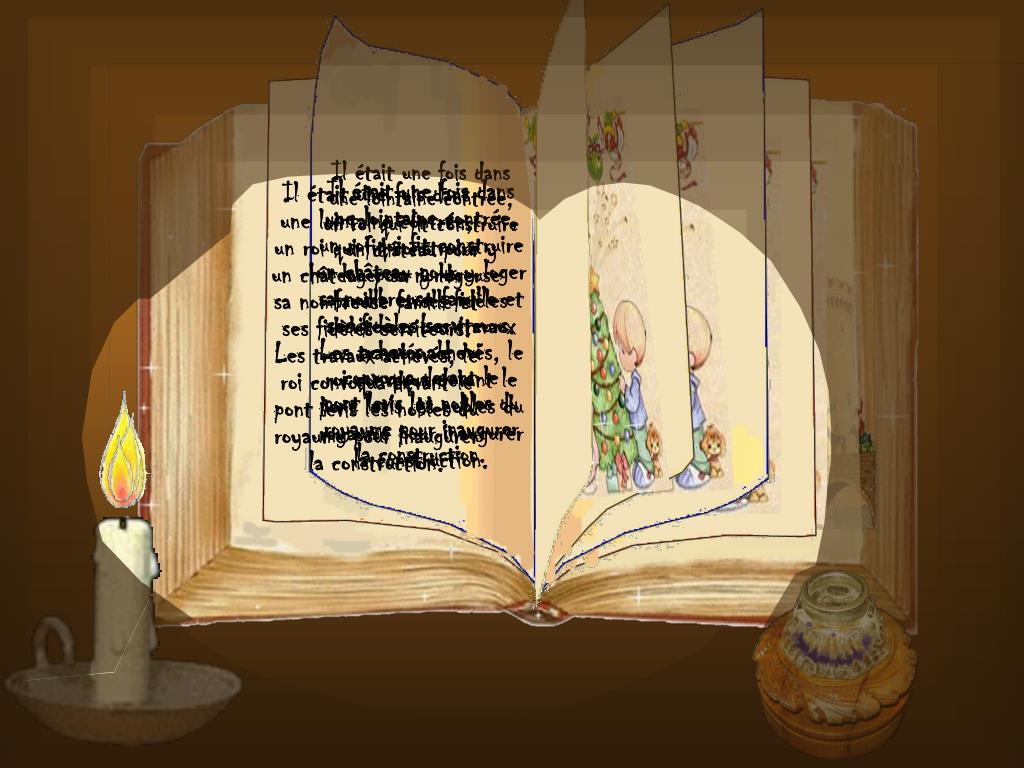 Il était une fois dans
une lointaine contrée,
un roi qui fit construire
un château pour y loger
sa nombreuse famille et
ses fidèles serviteurs.
Les travaux achevés, le
roi convoqua devant le
pont levis les nobles du
royaume pour inaugurer
la construction.